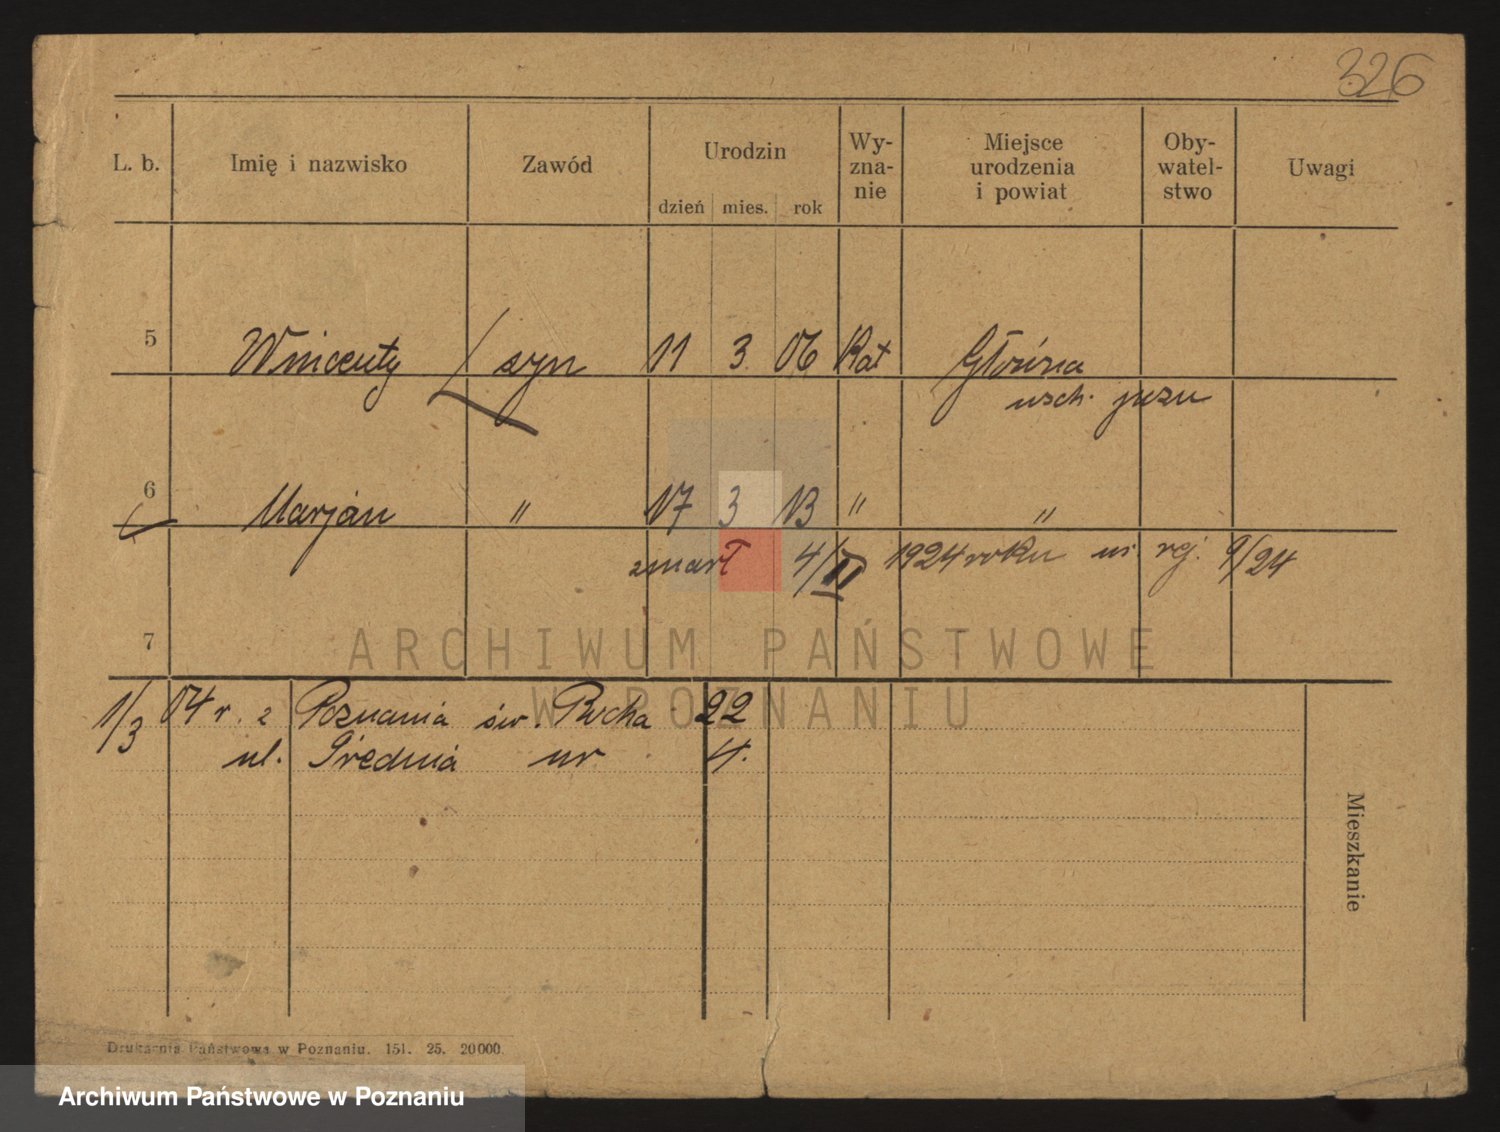 326
L. b. Imię i nazwisko Zawód Urodzin dzień mies. rok Wy-zna-nie Miejsce urodzenia i powiat Oby-watel-stwo Uwagi
5 Wincenty syn 11 3 06 Kat Główna
wsch.
6 Marjan " 17 3 13 " "
zmarł 4/II 1924 roku nr. rej. 9/24
7
ARCHIWUM PAŃSTWOWE
W POZNANIU
1/3 04 r. z Poznania św. Rocha 22
ul. Średnia nr 4.
Mieszkanie
Drukarnia Państwowa w Poznaniu. 151. 25. 20000.
Archiwum Państwowe w Poznaniu